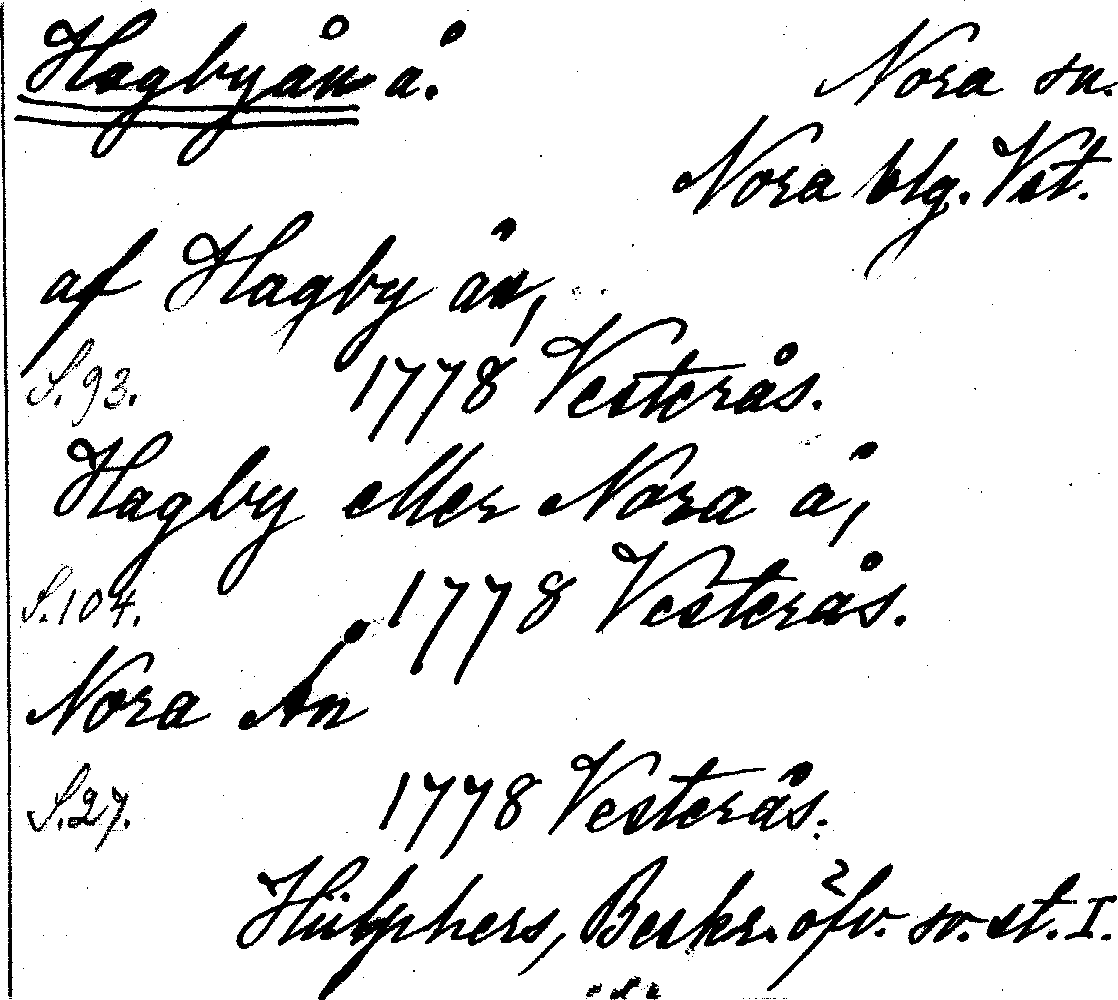 Hagbyån å.
Nora sn.
Nora blg. Vst.
af Hagby ån,
S.93. 1778 Vesterås.
Hagby eller Nora å,
S.104. 1778 Vesterås.
Nora Ån
S.27. 1778 Vesterås.
Hülphers, Beskr. öfv. sv. st. I.